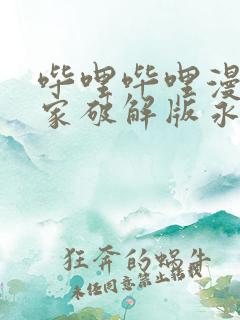 哔哩哔哩漫
家破解版永
狂奔的蜗牛
未经同意禁止转载